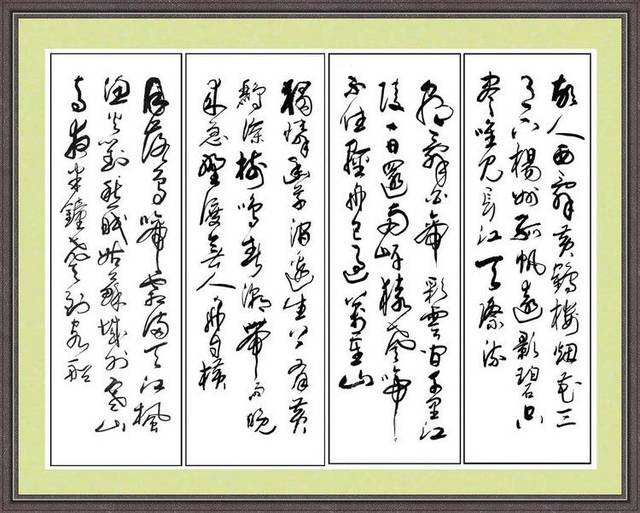 故人西辭黃鶴樓烟花三
月下揚州孤帆遠影碧空
盡唯見長江天際流
朝辭白帝彩雲间千里江
陵一日還兩岸猿聲啼
不住輕舟已過萬重山
獨憐幽草澗邊生上有黃
鸝深樹鳴春潮帶雨晚
來急野渡無人舟自橫
月落烏啼霜滿天江楓
漁火對愁眠姑蘇城外寒山
寺夜半鐘聲到客船